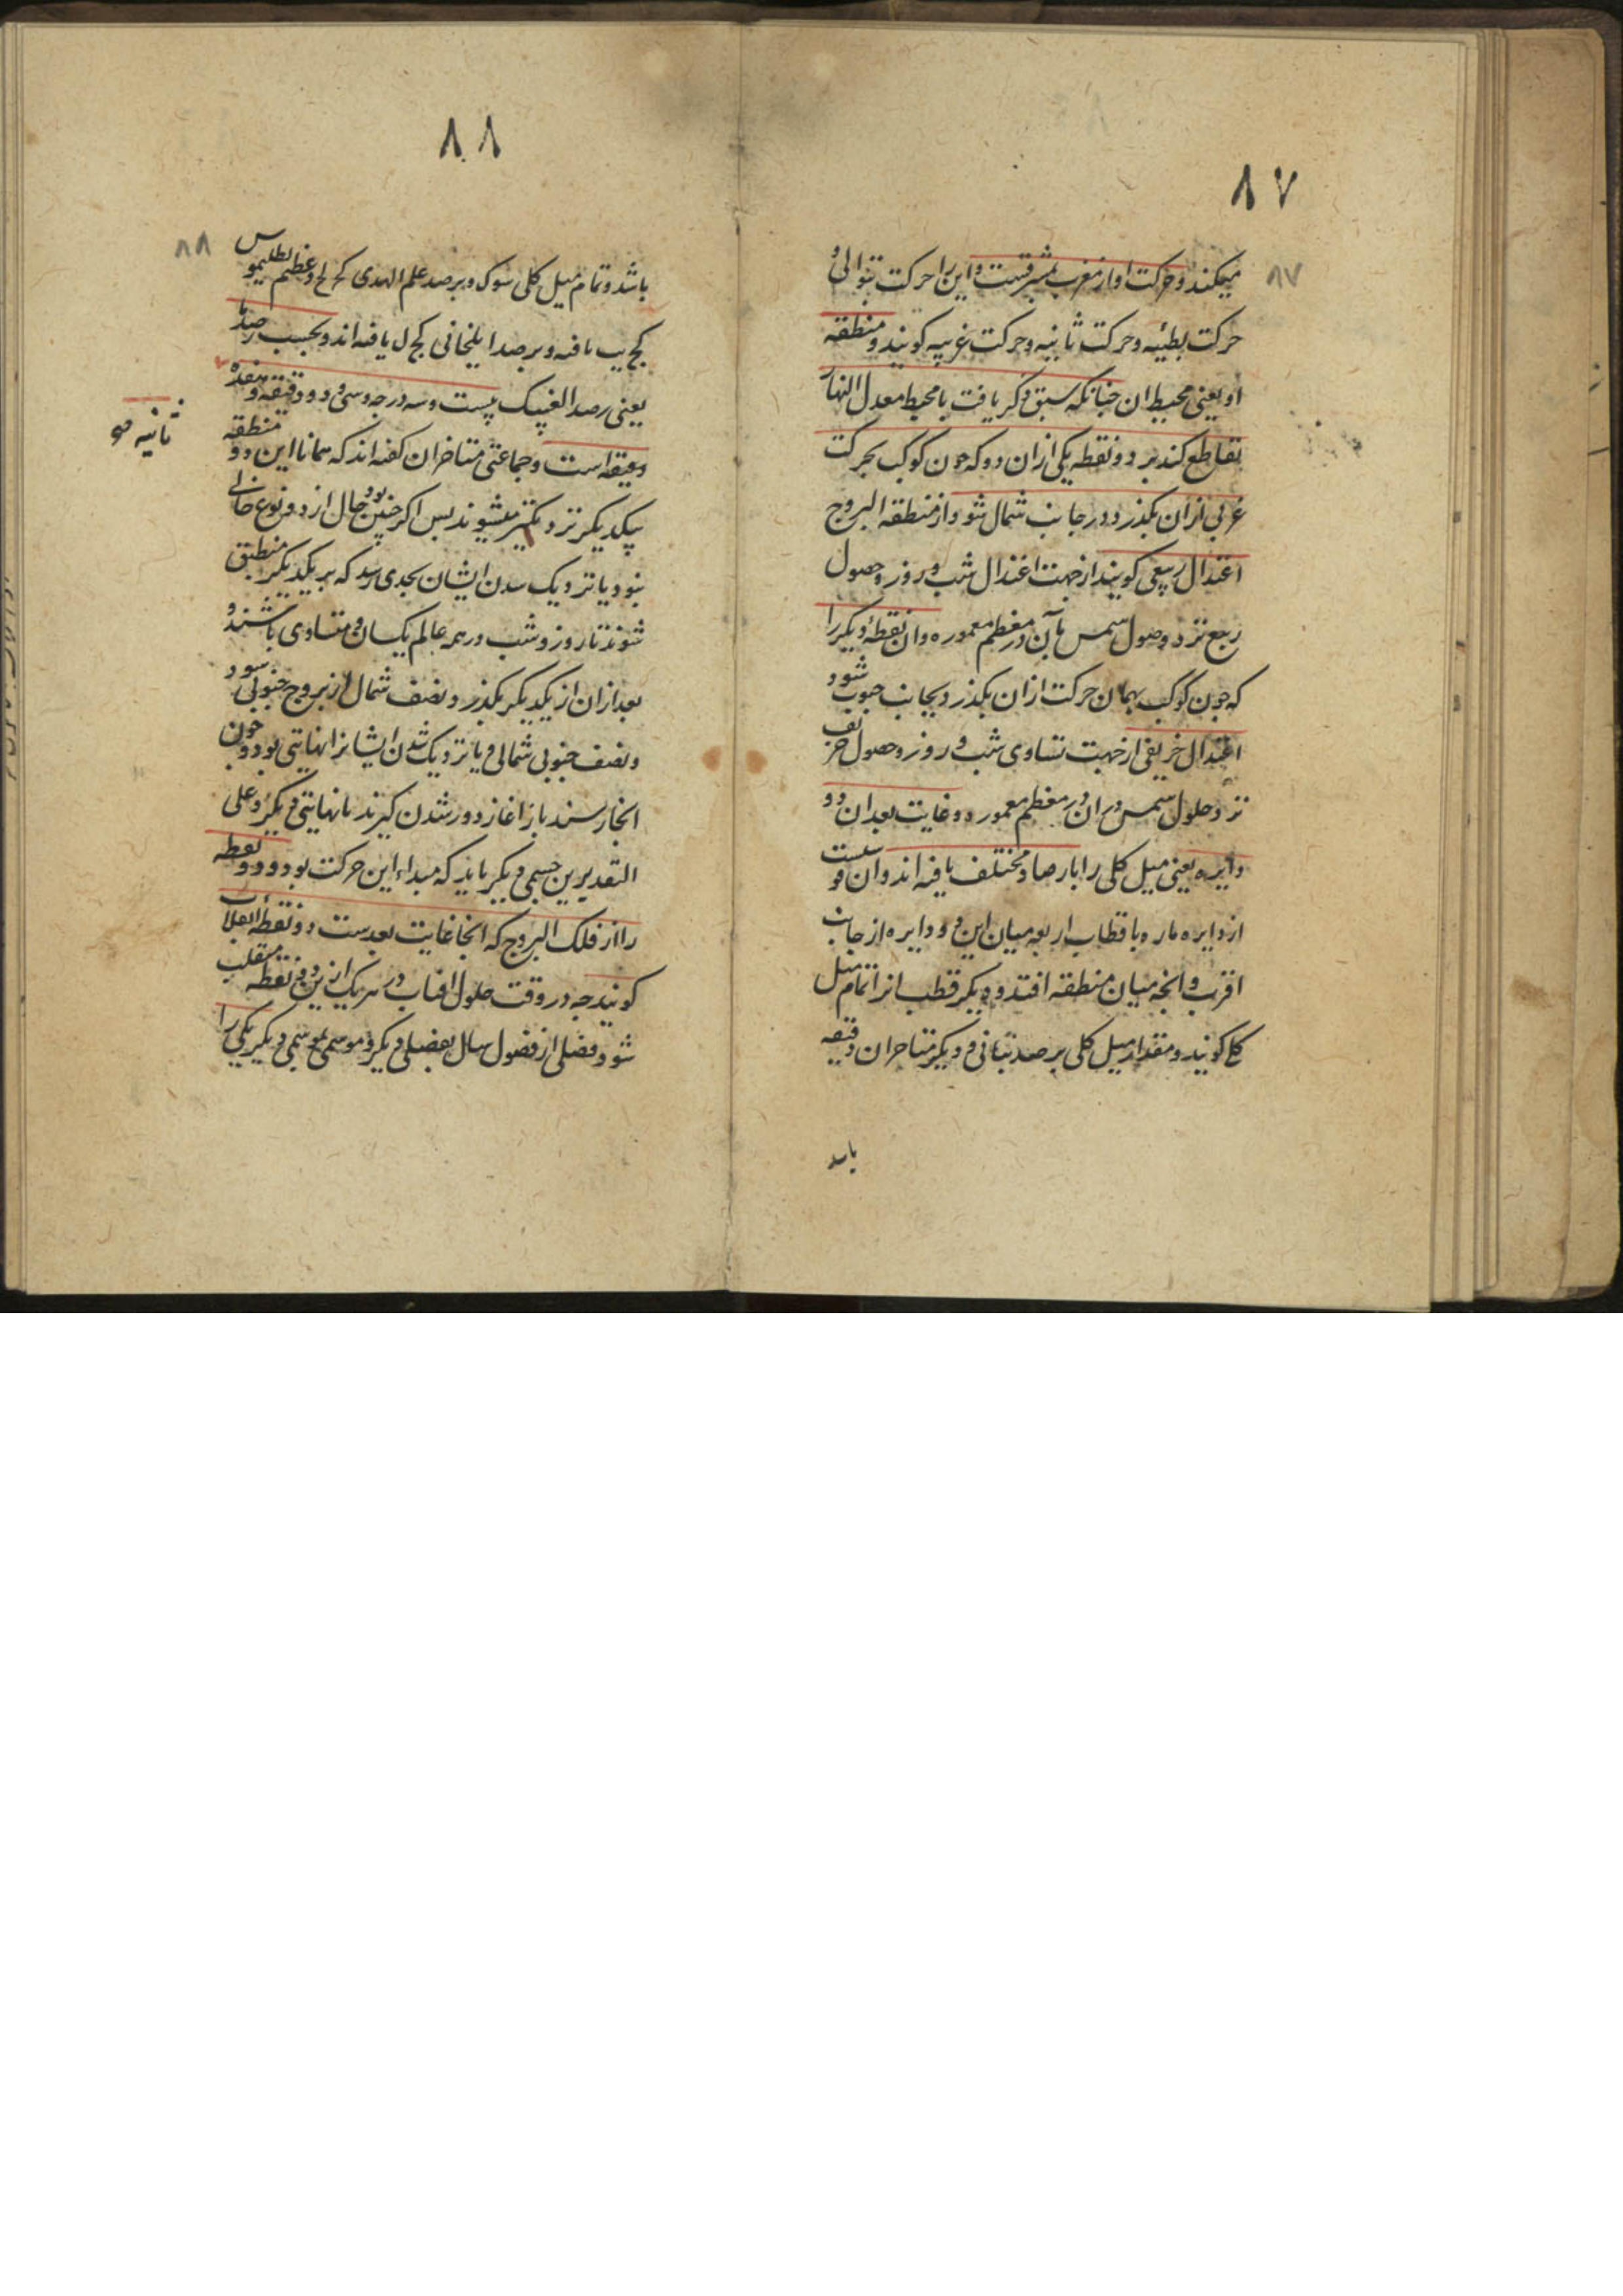 ۸۷
۸۷
میکند و حرکت او از مغرب بمشرقست و این را حرکت بتوالی و
حرکت بطئیه و حرکت ثانیه و حرکت غربیه کویند و منطقه
او یعنی محیط ان چنانکه سبق ذکر یافت با محیط معدل النهار
تقاطع کند بر دو نقطه یکی ازان دو که چون کوکب بحرکت
غربی ازان بکذرد در جانب شمال شود از منطقه البروج
اعتدال ربیعی کویند از جهت اعتدال شب و روز و حصول
ربیع نزد وصول شمس بآن در معظم معموره و ان نقطه دیکر را
که چون کوکب بهمان حرکت ازان بکذرد بجانب جنوب شود
اعتدال خریفی از جهت تساوی شب و روز و حصول خریف
نزد حلول شمس دران در معظم معموره و غایت بعد ان دو
دایره یعنی میل کلی را بارصاد مختلف یافته اند و ان قوسیست
از دایره ماره باقطاب اربعه میان این دو دایره از جانب
اقرب و انچه میان منطقه افتد و دیکر قطب انرا تمام میل
کلی کویند و مقدار میل کلی برصد بتانی و دیکر متاخران دقیقه
باشد
۸۸
۸۸
باشد و تمام میل کلی سوک و برصد علم الهدی کح لح و عظیم بطلیموس
کج یافته و برصد ایلخانی کج ل یافته اند و بحسب رصد ما
یعنی رصد الغ بیک بیست و سه درجه و سی و دو دقیقه و هفده
ثانیه
دقیقه است و جماعتی متاخران کفته اند که همانا این دو منطقه
بیکدیکر نزدیکتر میشوند پس اکر چنین بود حال از دو نوع خالی
نبود یا نزدیک شدن ایشان بحدی رسد که بر یکدیکر منطبق
شوند تا روز و شب در همه عالم یکسان و متساوی باشند و
بعد ازان از یکدیکر بکذرد و نصف شمال از بروج جنوبی شود
و نصف جنوبی شمالی و یا نزدیک شدن ایشانرا نهایتی بود و چون
انجا رسند باز اغاز دور شدن کیرند تا نهایتی دیکر و علی
التقدیرین جسمی دیکر باید که مبداء این حرکت بود و دو نقطه
را از فلک البروج که انجا غایت بعدست دو نقطه انقلاب
کویند چه در وقت حلول افتاب در هر یک ازین دو نقطه منقلب
شود فصلی از فصول سال بفصلی دیکر و موسمی بموسمی دیکر یکی را